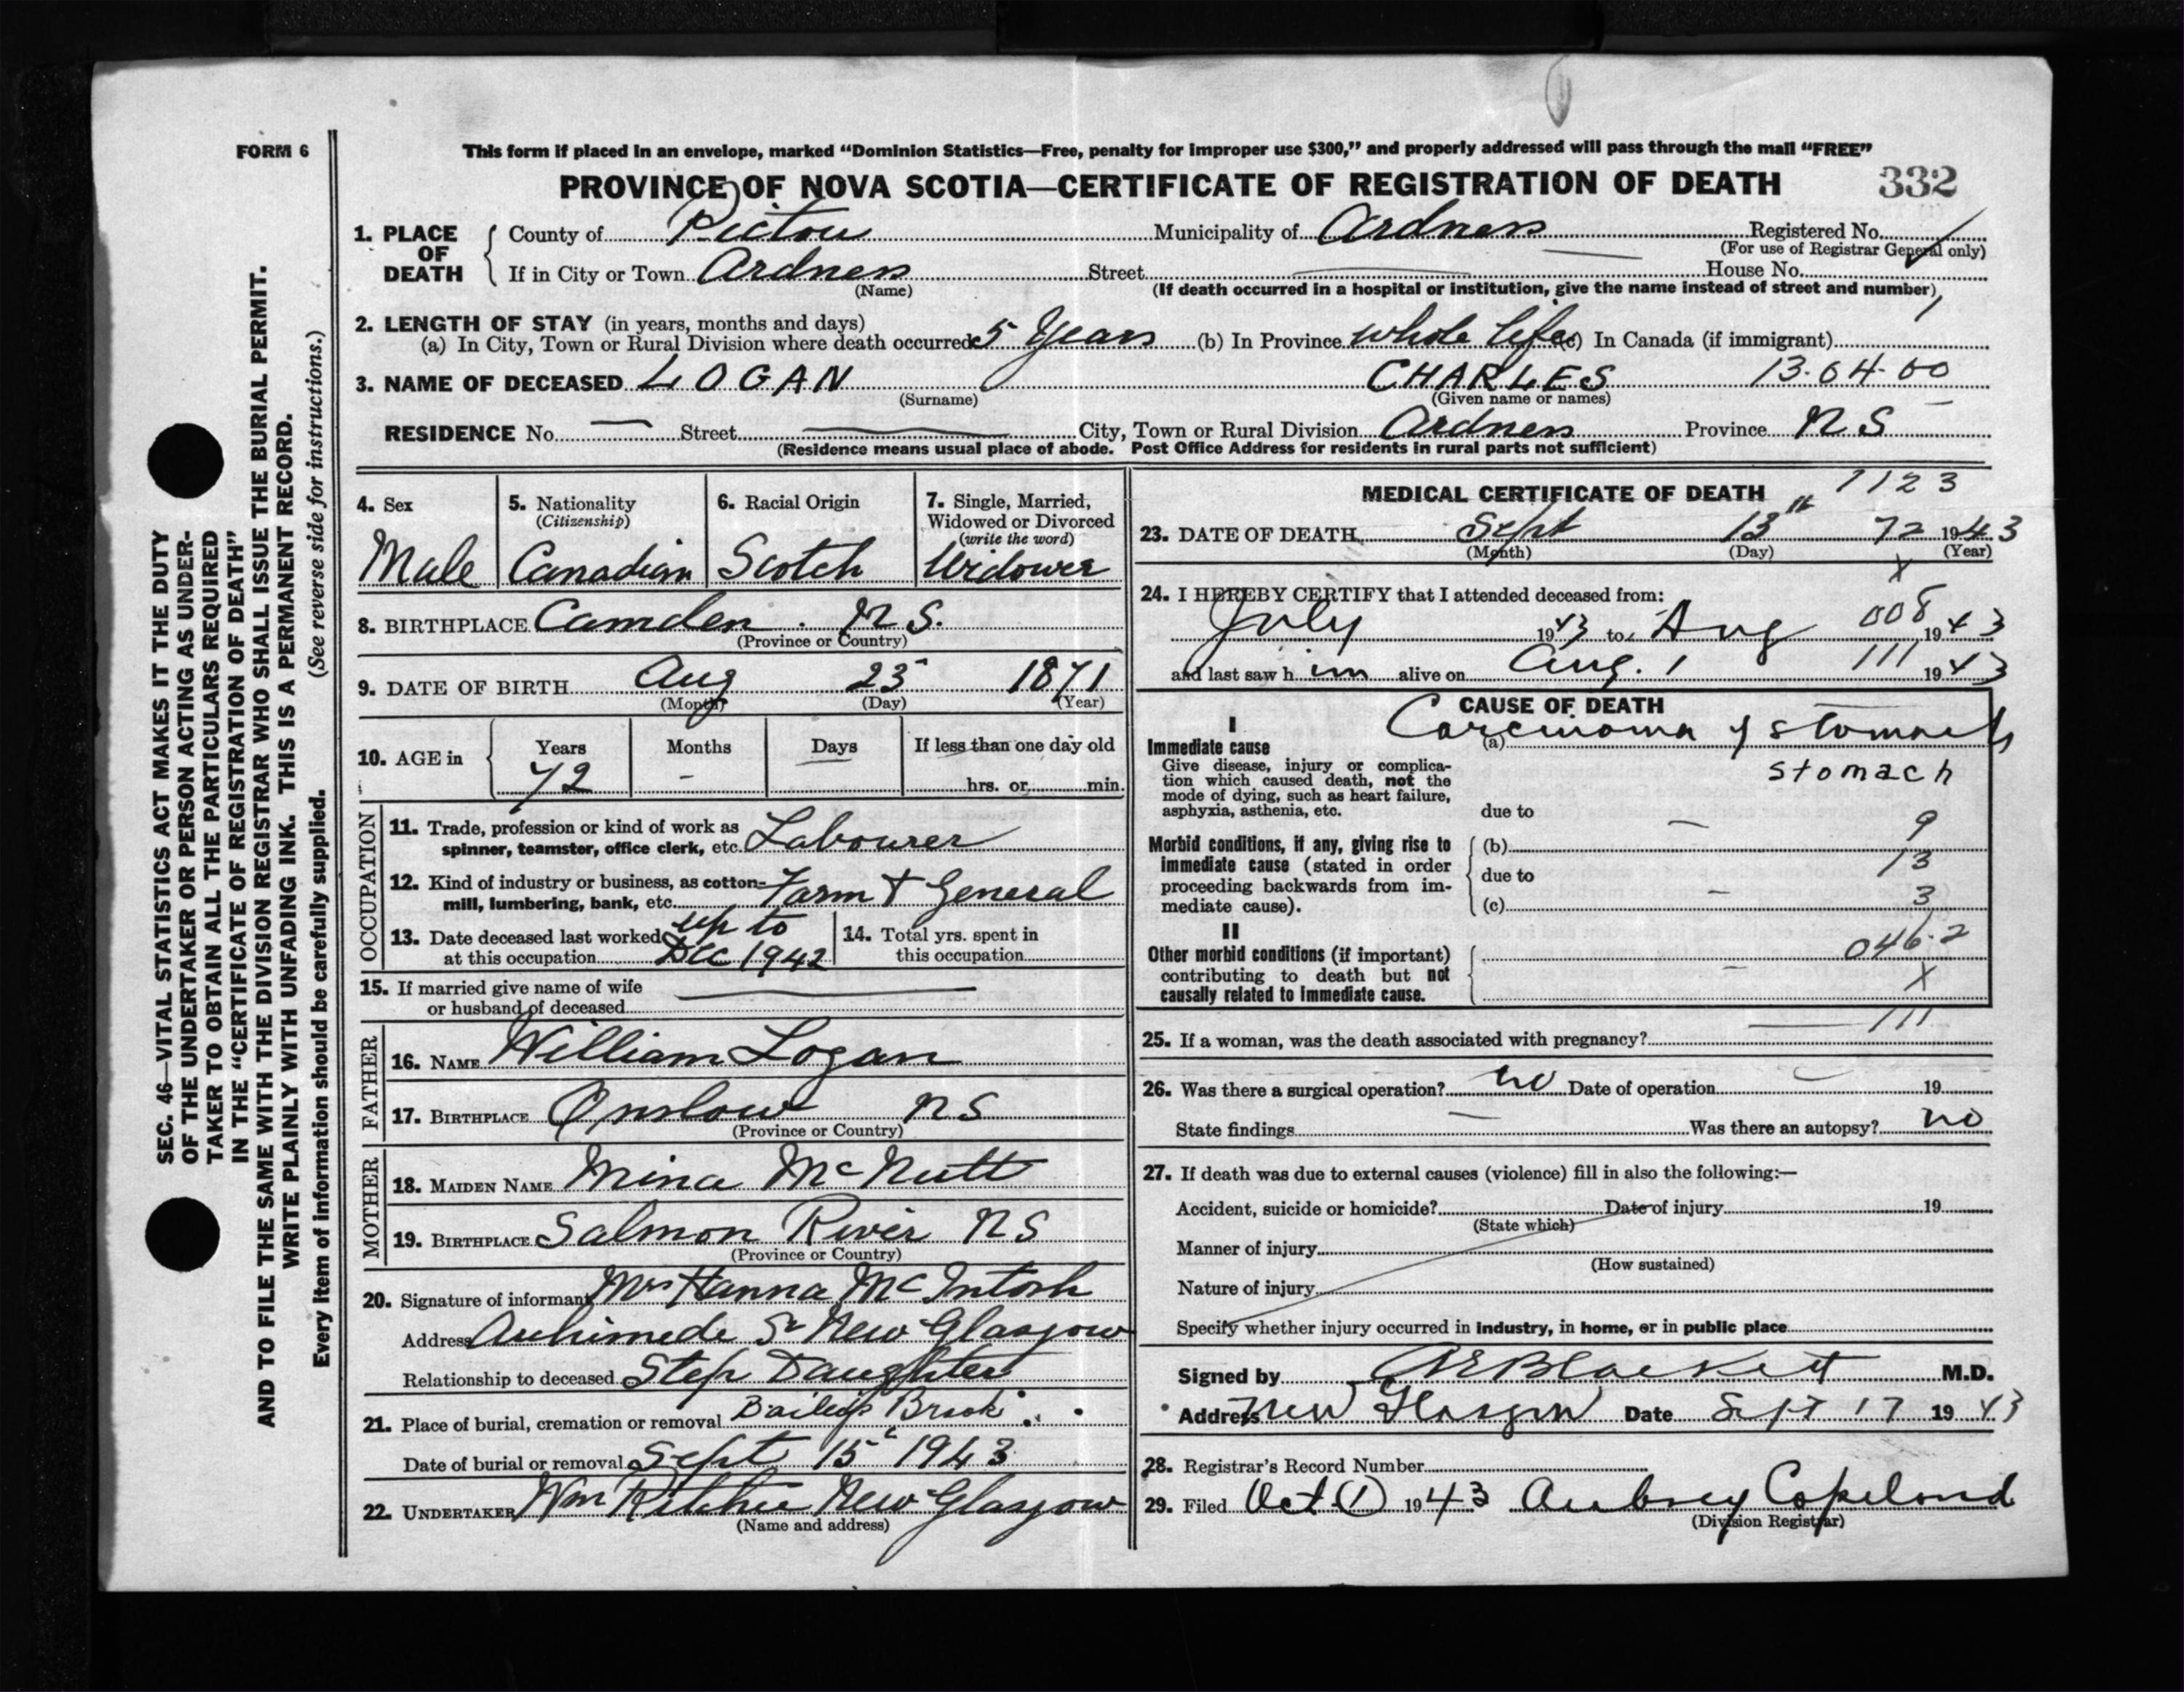 FORM 6
This form if placed in an envelope, marked “Dominion Statistics—Free, penalty for improper use $300,” and properly addressed will pass through the mail “FREE”
PROVINCE OF NOVA SCOTIA—CERTIFICATE OF REGISTRATION OF DEATH 332
1. PLACE OF DEATH County of Pictou Municipality of Ardness Registered No.
(For use of Registrar General only)
If in City or Town Ardness Street House No.
(Name) (If death occurred in a hospital or institution, give the name instead of street and number)
2. LENGTH OF STAY (in years, months and days)
(a) In City, Town or Rural Division where death occurred 5 Years (b) In Province whole life (c) In Canada (if immigrant)
3. NAME OF DECEASED LOGAN CHARLES 13-04-00
(Surname) (Given name or names)
RESIDENCE No. — Street City, Town or Rural Division Ardness Province N S
(Residence means usual place of abode. Post Office Address for residents in rural parts not sufficient)
4. Sex Male
5. Nationality (Citizenship) Canadian
6. Racial Origin Scotch
7. Single, Married, Widowed or Divorced (write the word) Widower
8. BIRTHPLACE Camden . N S.
(Province or Country)
9. DATE OF BIRTH Aug 23 1871
(Month) (Day) (Year)
10. AGE in Years 72 Months - Days — If less than one day old
hrs. or min.
OCCUPATION
11. Trade, profession or kind of work as
spinner, teamster, office clerk, etc. Labourer
12. Kind of industry or business, as cotton-
mill, lumbering, bank, etc. Farm & General
13. Date deceased last worked up to
at this occupation Dec 1942
14. Total yrs. spent in
this occupation
15. If married give name of wife
or husband of deceased
FATHER
16. NAME William Logan
17. BIRTHPLACE Onslow N S
(Province or Country)
MOTHER
18. MAIDEN NAME Mina McNutt
19. BIRTHPLACE Salmon River N S
(Province or Country)
20. Signature of informant Mrs Hanna McIntosh
Address Archimede St New Glasgow
Relationship to deceased Step Daughter
21. Place of burial, cremation or removal Brook
Date of burial or removal Sept 15 1943
22. UNDERTAKER Wm Ritchie New Glasgow
(Name and address)
MEDICAL CERTIFICATE OF DEATH 1123
23. DATE OF DEATH Sept 13th 72 1943
(Month) (Day) (Year)
X
24. I HEREBY CERTIFY that I attended deceased from:
July 1943 to Aug 008 1943
and last saw h im alive on Aug. 1 111 1943
CAUSE OF DEATH
I
Immediate cause (a) Carcinoma of stomach
Give disease, injury or complica-
tion which caused death, not the
mode of dying, such as heart failure,
asphyxia, asthenia, etc.
stomach
due to —
Morbid conditions, if any, giving rise to
immediate cause (stated in order
proceeding backwards from im-
mediate cause).
(b) 9
due to 13
(c) — 3
II
Other morbid conditions (if important)
contributing to death but not
causally related to immediate cause.
046.2
X
25. If a woman, was the death associated with pregnancy? 111
26. Was there a surgical operation? no Date of operation 19
State findings — Was there an autopsy? no
27. If death was due to external causes (violence) fill in also the following:—
Accident, suicide or homicide? Date of injury 19
(State which)
Manner of injury
(How sustained)
Nature of injury
Specify whether injury occurred in industry, in home, or in public place
Signed by M.D.
Address New Glasgow Date Sept 17 1943
28. Registrar's Record Number
29. Filed Oct (1) 1943 Aubrey Copeland
(Division Registrar)
SEC. 46—VITAL STATISTICS ACT MAKES IT THE DUTY
OF THE UNDERTAKER OR PERSON ACTING AS UNDER-
TAKER TO OBTAIN ALL THE PARTICULARS REQUIRED
IN THE “CERTIFICATE OF REGISTRATION OF DEATH”
AND TO FILE THE SAME WITH THE DIVISION REGISTRAR WHO SHALL ISSUE THE BURIAL PERMIT.
WRITE PLAINLY WITH UNFADING INK. THIS IS A PERMANENT RECORD.
Every item of information should be carefully supplied. (See reverse side for instructions.)